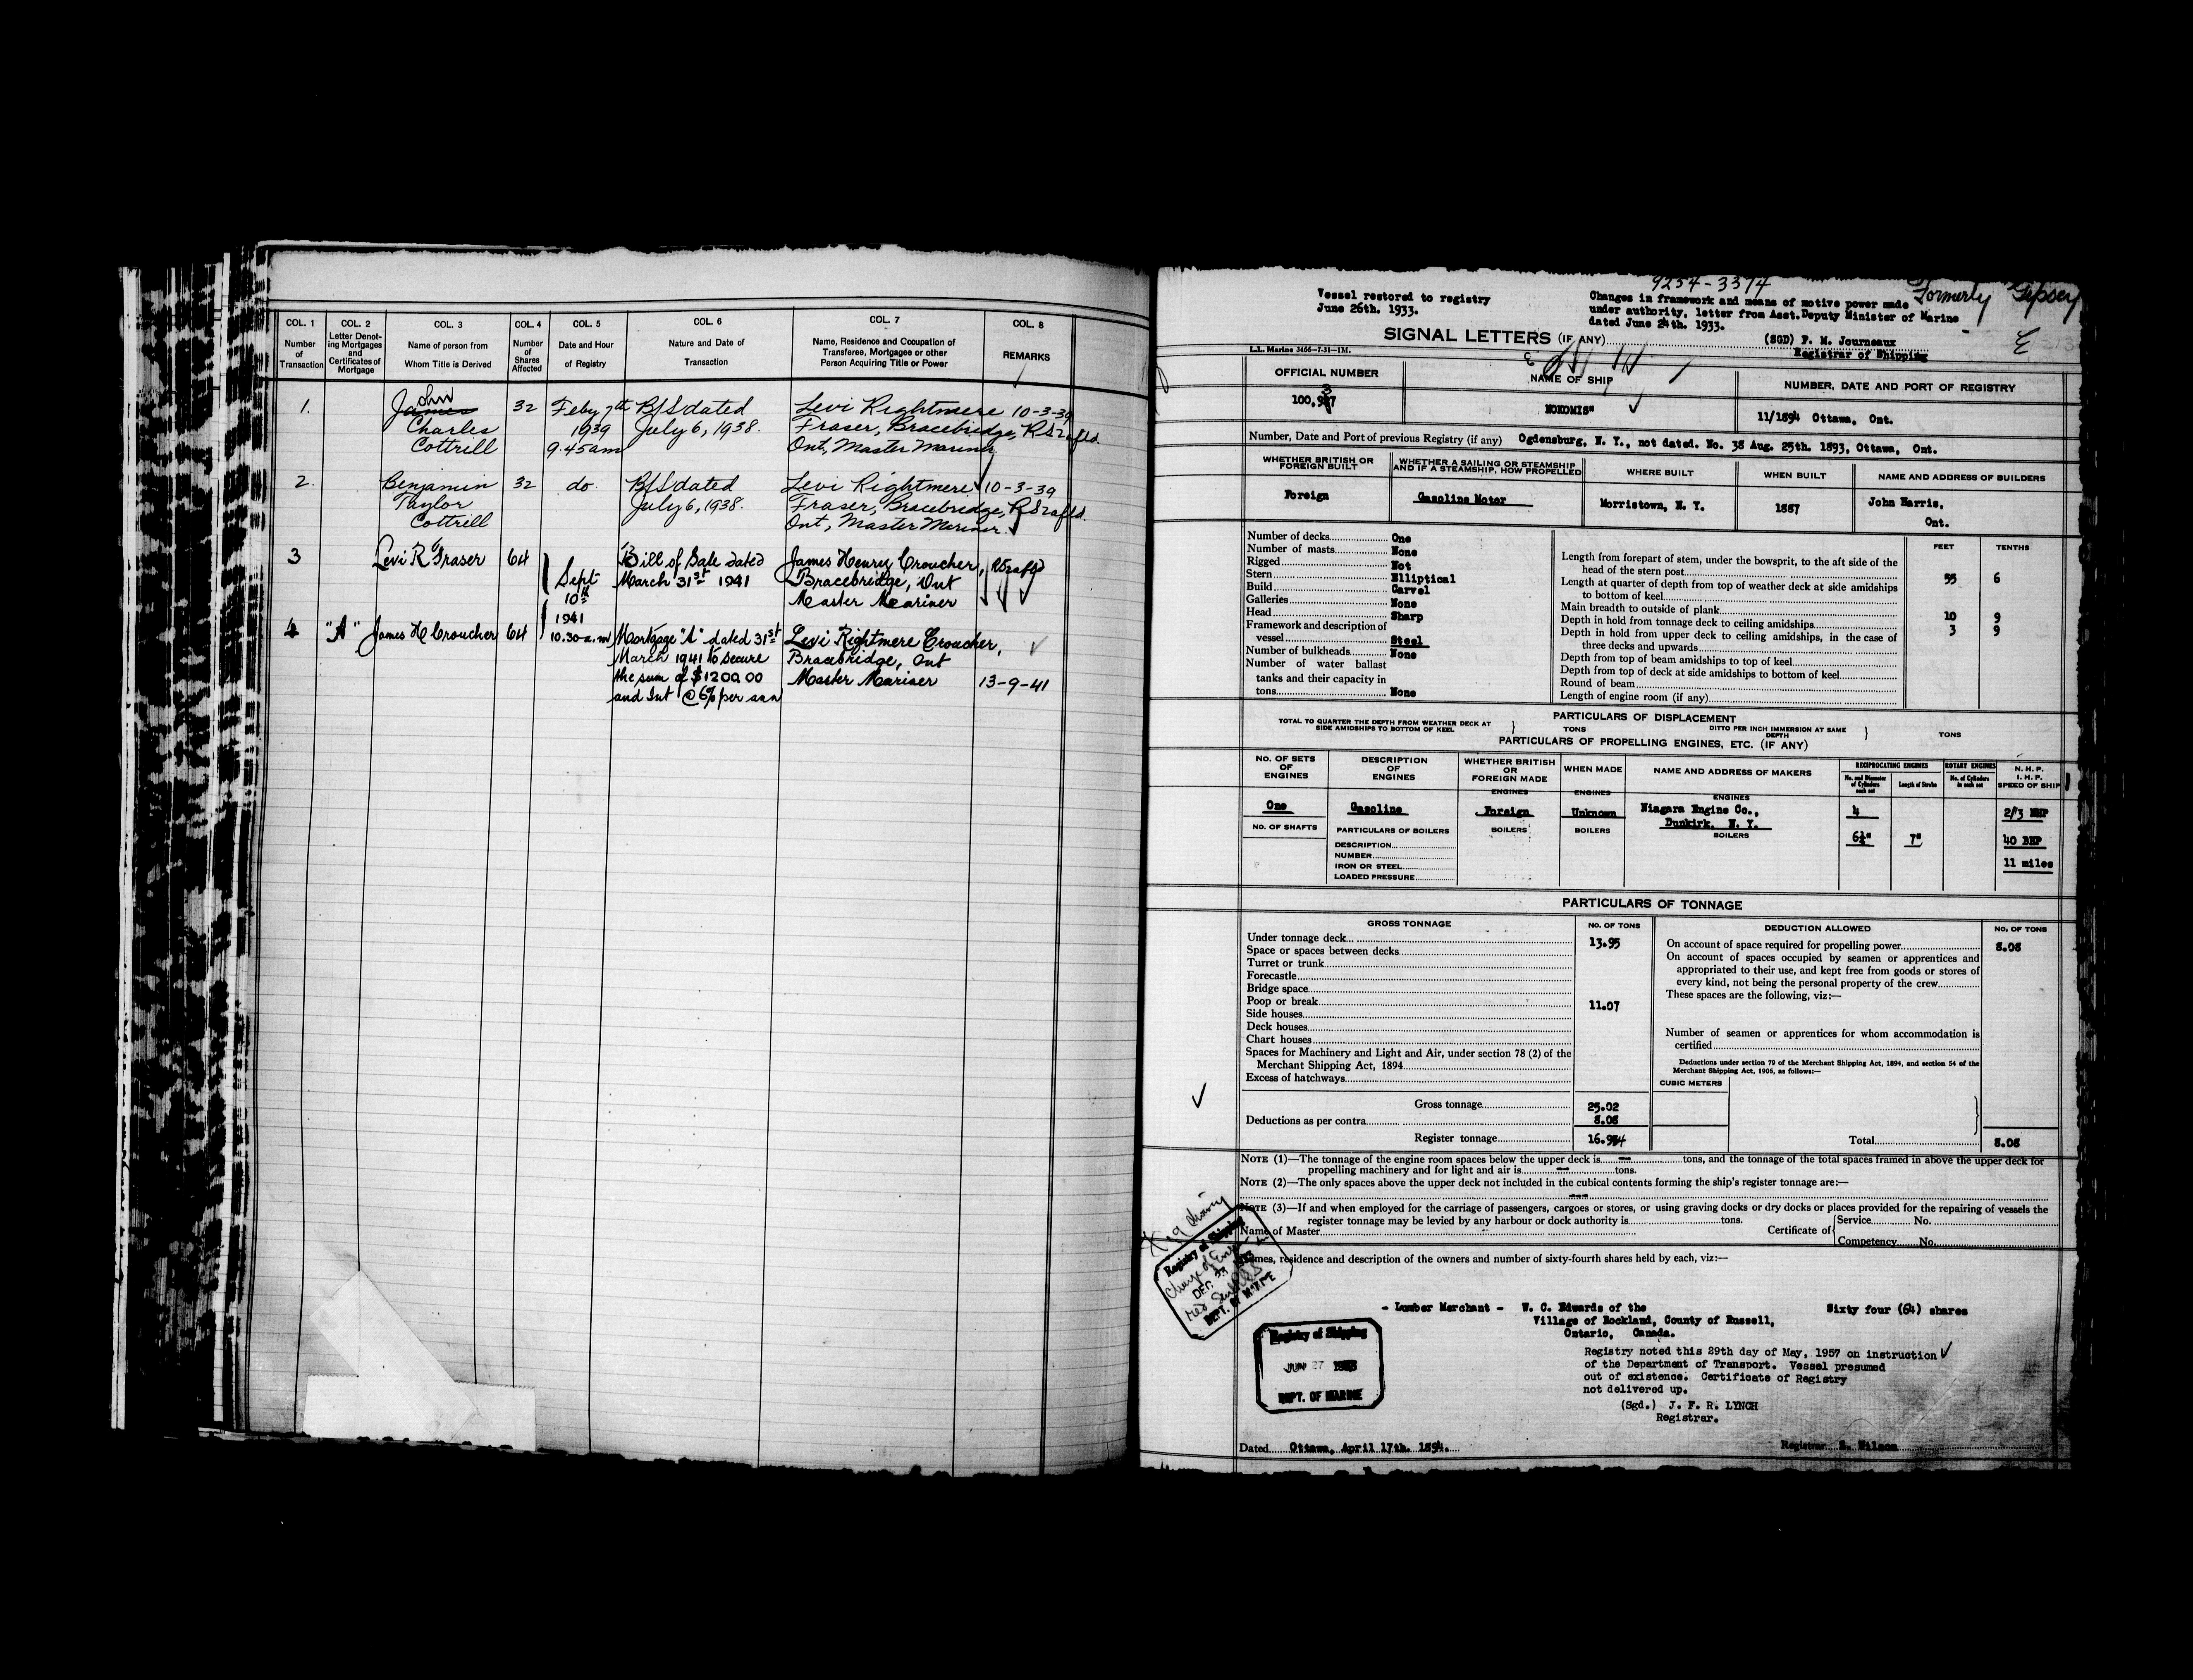 COL. 1
Number
of
Transaction
COL. 2
Letter Denot-
ing Mortgages
and
Certificates of
Mortgage
COL. 3
Name of person from
Whom Title is Derived
COL. 4
Number
of
Shares
Affected
COL. 5
Date and Hour
of Registry
COL. 6
Nature and Date of
Transaction
COL. 7
Name, Residence and Occupation of
Transferee, Mortgagee or other
Person Acquiring Title or Power
COL. 8
REMARKS
1.
John
James
Charles
Cottrill
32
Feby 7th
1939
9.45am
B/S dated
July 6, 1938.
Levi Rightmere
Fraser, Bracebridge,
Ont, Master Mariner
10-3-39
2.
Benjamin
Taylor
Cottrill
32
do.
B/S dated
July 6, 1938.
Levi Rightmere
Fraser, Bracebridge,
Ont, Master Mariner.
10-3-39
3
Levi R Fraser
64
Sept
10th
1941
10.30 a.m
Bill of Sale dated
March 31st 1941
James Henry Croucher,
Bracebridge, Ont
Master Mariner
4
"A"
James H Croucher
64
Mortgage "A" dated 31st
March 1941 to secure
the sum of $1200.00
and Int @ 6% per ann
Levi Rightmere Croucher,
Bracebridge, Ont
Master Mariner
13-9-41
9254-3314
Formerly "Gipsey
Vessel restored to registry
June 26th. 1933.
Changes in framework and means of motive power made
under authority, letter from Asst. Deputy Minister of Marine
dated June 24th. 1933.
SIGNAL LETTERS (IF ANY)
(SGD) F. M. Journeaux
Registrar of Shipping
L.L. Marine 3466-7-31-1M.
OFFICIAL NUMBER
NAME OF SHIP
NUMBER, DATE AND PORT OF REGISTRY
NOKOMIS"
11/1894 Ottawa, Ont.
Number, Date and Port of previous Registry (if any) Ogdensburg, N. Y., not dated. No. 38 Aug. 25th. 1893, Ottawa, Ont.
WHETHER BRITISH OR
FOREIGN BUILT
WHETHER A SAILING OR STEAMSHIP
AND IF A STEAMSHIP, HOW PROPELLED
WHERE BUILT
WHEN BUILT
NAME AND ADDRESS OF BUILDERS
Foreign
Gasoline Motor
Morristown, N. Y.
1887
John Harris,
Ont.
Number of decks One
Number of masts None
Rigged Not
Stern Elliptical
Build Carvel
Galleries None
Head Sharp
Framework and description of
vessel Steel
Number of bulkheads None
Number of water ballast
tanks and their capacity in
tons None
FEET
TENTHS
Length from forepart of stem, under the bowsprit, to the aft side of the
head of the stern post 55 6
Length at quarter of depth from top of weather deck at side amidships
to bottom of keel
Main breadth to outside of plank 10 9
Depth in hold from tonnage deck to ceiling amidships 3 9
Depth in hold from upper deck to ceiling amidships, in the case of
three decks and upwards
Depth from top of beam amidships to top of keel
Depth from top of deck at side amidships to bottom of keel
Round of beam
Length of engine room (if any)
PARTICULARS OF DISPLACEMENT
TOTAL TO QUARTER THE DEPTH FROM WEATHER DECK AT
SIDE AMIDSHIPS TO BOTTOM OF KEEL
TONS
DITTO PER INCH IMMERSION AT SAME
DEPTH
TONS
PARTICULARS OF PROPELLING ENGINES, ETC. (IF ANY)
NO. OF SETS
OF
ENGINES
DESCRIPTION
OF
ENGINES
WHETHER BRITISH
OR
FOREIGN MADE
WHEN MADE
NAME AND ADDRESS OF MAKERS
RECIPROCATING ENGINES
No. and Diameter
of Cylinders
each set
Length of Stroke
ROTARY ENGINES
No. of Cylinders
in each set
N. H. P.
I. H. P.
SPEED OF SHIP
ENGINES
ENGINES
ENGINES
One
Gasoline
Foreign
Unknown
Niagara Engine Co.,
Dunkirk, N. Y.
4
2/3 NHP
NO. OF SHAFTS
PARTICULARS OF BOILERS
BOILERS
BOILERS
BOILERS
6½"
7"
40 BHP
11 miles
DESCRIPTION
NUMBER
IRON OR STEEL
LOADED PRESSURE
PARTICULARS OF TONNAGE
GROSS TONNAGE
NO. OF TONS
DEDUCTION ALLOWED
NO. OF TONS
Under tonnage deck 13.95
Space or spaces between decks
Turret or trunk
Forecastle
Bridge space
Poop or break
Side houses 11.07
Deck houses
Chart houses
Spaces for Machinery and Light and Air, under section 78 (2) of the
Merchant Shipping Act, 1894
Excess of hatchways
Gross tonnage 25.02
Deductions as per contra 8.08
Register tonnage 16.94
On account of space required for propelling power 8.08
On account of spaces occupied by seamen or apprentices and
appropriated to their use, and kept free from goods or stores of
every kind, not being the personal property of the crew
These spaces are the following, viz:—
Number of seamen or apprentices for whom accommodation is
certified
Deductions under section 79 of the Merchant Shipping Act, 1894, and section 54 of the
Merchant Shipping Act, 1906, as follows:—
CUBIC METERS
Total 8.08
NOTE (1)—The tonnage of the engine room spaces below the upper deck is — tons, and the tonnage of the total spaces framed in above the upper deck for
propelling machinery and for light and air is — tons.
NOTE (2)—The only spaces above the upper deck not included in the cubical contents forming the ship's register tonnage are:—
NOTE (3)—If and when employed for the carriage of passengers, cargoes or stores, or using graving docks or dry docks or places provided for the repairing of vessels the
register tonnage may be levied by any harbour or dock authority is tons.
Name of Master
Certificate of
Service No.
Competency No.
Names, residence and description of the owners and number of sixty-fourth shares held by each, viz:—
Registry of Shipping
DEC
DEPT. OF MARINE
- Lumber Merchant - W. C. Edwards of the Sixty four (64) shares
Village of Rockland, County of Russell,
Ontario, Canada.
Registry of Shipping
JUN 27
DEPT. OF MARINE
Registry noted this 29th day of May, 1957 on instruction
of the Department of Transport. Vessel presumed
out of existence. Certificate of Registry
not delivered up.
(Sgd.) J. F. R. LYNCH
Registrar.
Dated Ottawa, April 17th. 1894.
Registrar Wilson